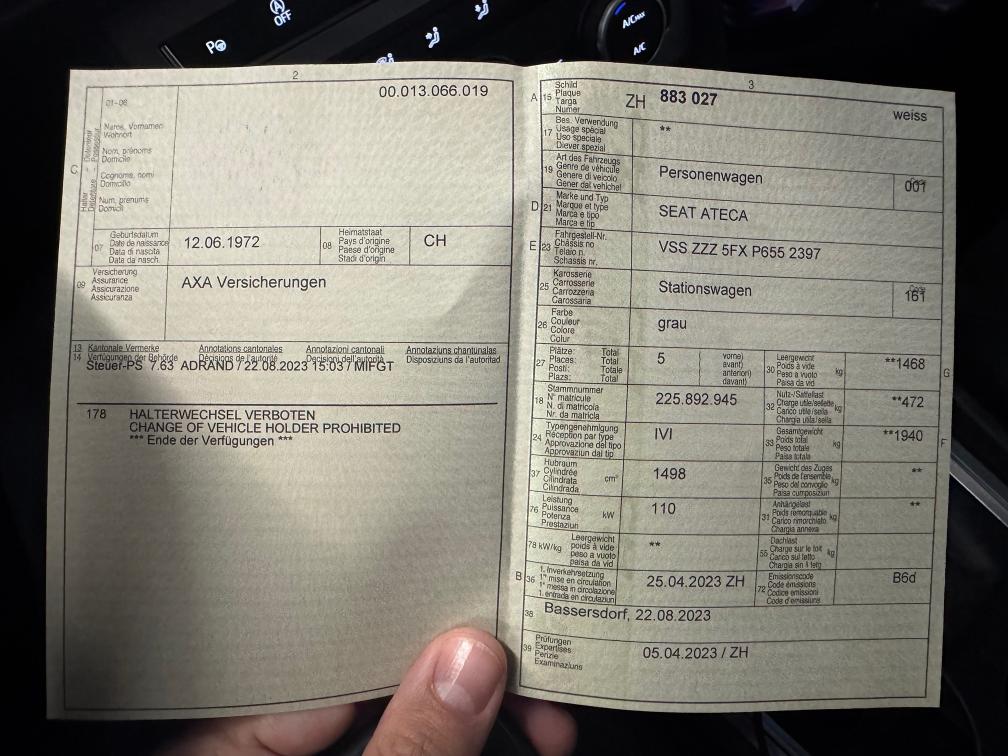 OFF
P
A/C MAX
A/C
2
00.013.066.019
01-06
C
Halter - Détenteur
Detentore - Possessur
Name, Vornamen
Wohnort
Nom, prénoms
Domicile
Cognome, nomi
Domicilio
Num, prenums
Domicil
07
Geburtsdatum
Date de naissance
Data di nascita
Data da nasch.
12.06.1972
08
Heimatstaat
Pays d'origine
Paese d'origine
Stadi d'origin
CH
09
Versicherung
Assurance
Assicurazione
Assicuranza
AXA Versicherungen
13
14
Kantonale Vermerke
Verfügungen der Behörde
Annotations cantonales
Décisions de l'autorité
Annotazioni cantonali
Decisioni dell'autorità
Annotaziuns chantunalas
Disposiziuns da l'autoritad
Steuer-PS 7.63 ADRAND / 22.08.2023 15:03 / MIFGT
178 HALTERWECHSEL VERBOTEN
CHANGE OF VEHICLE HOLDER PROHIBITED
*** Ende der Verfügungen ***
3
A 15
Schild
Plaque
Targa
Numer
ZH 883 027
weiss
17
Bes. Verwendung
Usage spécial
Uso speciale
Diever spezial
**
19
Art des Fahrzeugs
Genre de véhicule
Genere di veicolo
Gener dal vehichel
Personenwagen
Code
001
D 21
Marke und Typ
Marque et type
Marca e tipo
Marca e tip
SEAT ATECA
E 23
Fahrgestell-Nr.
Châssis no
Telaio n.
Schassis nr.
VSS ZZZ 5FX P655 2397
25
Karosserie
Carrosserie
Carrozzeria
Carossaria
Stationswagen
Code
161
26
Farbe
Couleur
Colore
Colur
grau
27
Plätze: Total
Places: Total
Posti: Totale
Plazs: Total
5
vorne)
avant)
anteriori)
davant)
30
Leergewicht
Poids à vide
Peso a vuoto
Paisa da vid
kg
**1468
G
18
Stammnummer
N° matricule
N. di matricola
Nr. da matricla
225.892.945
32
Nutz-/Sattellast
Charge utile/sellette
Carico utile/sella
Chargia utila/sella
kg
**472
24
Typengenehmigung
Réception par type
Approvazione del tipo
Approvaziun dal tip
IVI
33
Gesamtgewicht
Poids total
Peso totale
Paisa totala
kg
**1940
F
37
Hubraum
Cylindrée
Cilindrata
Cilindrada
cm³
1498
35
Gewicht des Zuges
Poids de l'ensemble
Peso del convoglio
Paisa cumposiziun
kg
**
76
Leistung
Puissance
Potenza
Prestaziun
kW
110
31
Anhängelast
Poids remorquable
Carico rimorchiato
Chargia annexa
kg
**
78 kW/kg
Leergewicht
poids à vide
peso a vuoto
paisa da vid
**
55
Dachlast
Charge sur le toit
Carico sul tetto
Chargia sin il tetg
kg
B 36
1. Inverkehrsetzung
1re mise en circulation
1a messa in circolazione
1. entrada en circulaziun
25.04.2023 ZH
72
Emissionscode
Code émissions
Codice emissioni
Code d'emissiuns
B6d
38
Bassersdorf, 22.08.2023
39
Prüfungen
Expertises
Perizie
Examinaziuns
05.04.2023 / ZH